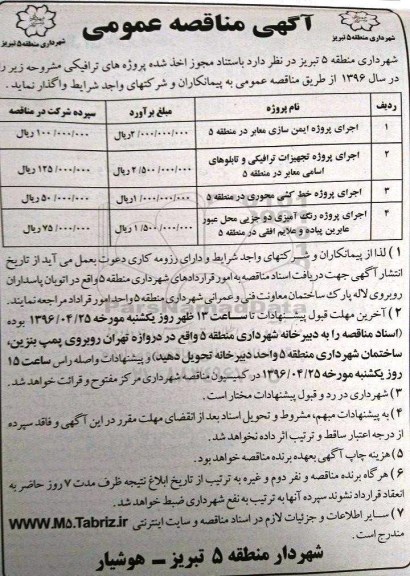 آگهی مناقصه عمومی
شهرداری منطقه ۵ تبریز
شهرداری منطقه ۵ تبریز
شهرداری منطقه ۵ تبریز در نظر دارد باستناد مجوز اخذ شده پروژه های ترافیکی مشروحه زیر را
در سال ۱۳۹۶ از طریق مناقصه عمومی به پیمانکاران و شرکتهای واجد شرایط واگذار نماید.
ردیف نام پروژه مبلغ برآورد سپرده شرکت در مناقصه
۱ اجرای پروژه ایمن سازی معابر در منطقه ۵ ۲/۰۰۰/۰۰۰/۰۰۰ریال ۱۰۰/۰۰۰/۰۰۰ ریال
۲ اجرای پروژه تجهیزات ترافیکی و تابلوهای
اسامی معابر در منطقه ۵ ۲/۵۰۰/۰۰۰/۰۰۰ ریال ۱۲۵/۰۰۰/۰۰۰ ریال
۳ اجرای پروژه خط کشی محوری در منطقه ۵ ۱/۰۰۰/۰۰۰/۰۰۰ریال ۵۰/۰۰۰/۰۰۰ ریال
۴ اجرای پروژه رنگ آمیزی دو جزیی محل عبور
عابرین پیاده و علایم افقی در منطقه ۵ ۱/۵۰۰/۰۰۰/۰۰۰ ریال ۷۵/۰۰۰/۰۰۰ ریال
۱) لذا از پیمانکاران و شرکتهای واجد شرایط و دارای رزومه کاری دعوت بعمل می آید از تاریخ
انتشار آگهی جهت دریافت اسناد مناقصه به امور قراردادهای شهرداری منطقه ۵ واقع در اتوبان پاسداران
روبروی لاله پارک ساختمان معاونت فنی و عمرانی شهرداری منطقه ۵ واحد امور قراداد مراجعه نمایند.
۲) آخرین مهلت قبول پیشنهادات تا ساعت ۱۳ ظهر روز یکشنبه مورخه ۱۳۹۶/۰۴/۲۵ بوده
(اسناد مناقصه را به دبیرخانه شهرداری منطقه ۵ واقع در دروازه تهران روبروی پمپ بنزین،
ساختمان شهرداری منطقه ۵ واحد دبیرخانه تحویل دهید) و پیشنهادات واصله راس ساعت ۱۵
روز یکشنبه مورخه ۱۳۹۶/۰۴/۲۵ در کمیسیون مناقصه شهرداری مرکز مفتوح و قرائت خواهد شد.
۳) شهرداری در رد و قبول پیشنهادات مختار است.
۴) به پیشنهادات مبهم، مشروط و تحویل اسناد بعد از انقضای مهلت مقرر در این آگهی و فاقد سپرده
از درجه اعتبار ساقط و ترتیب اثر داده نخواهد شد.
۵) هزینه چاپ آگهی بعهده برنده مناقصه خواهد بود.
۶) هر گاه برنده مناقصه و نفر دوم و غیره به ترتیب از تاریخ ابلاغ نتیجه ظرف مدت ۷ روز حاضر به
انعقاد قرارداد نشوند سپرده آنها به ترتیب به نفع شهرداری ضبط خواهد شد.
۷) سایر اطلاعات و جزئیات لازم در اسناد مناقصه و سایت اینترنتی WWW.M5.Tabriz.ir
مندرج است.
شهردار منطقه ۵ تبریز ــ هوشیار